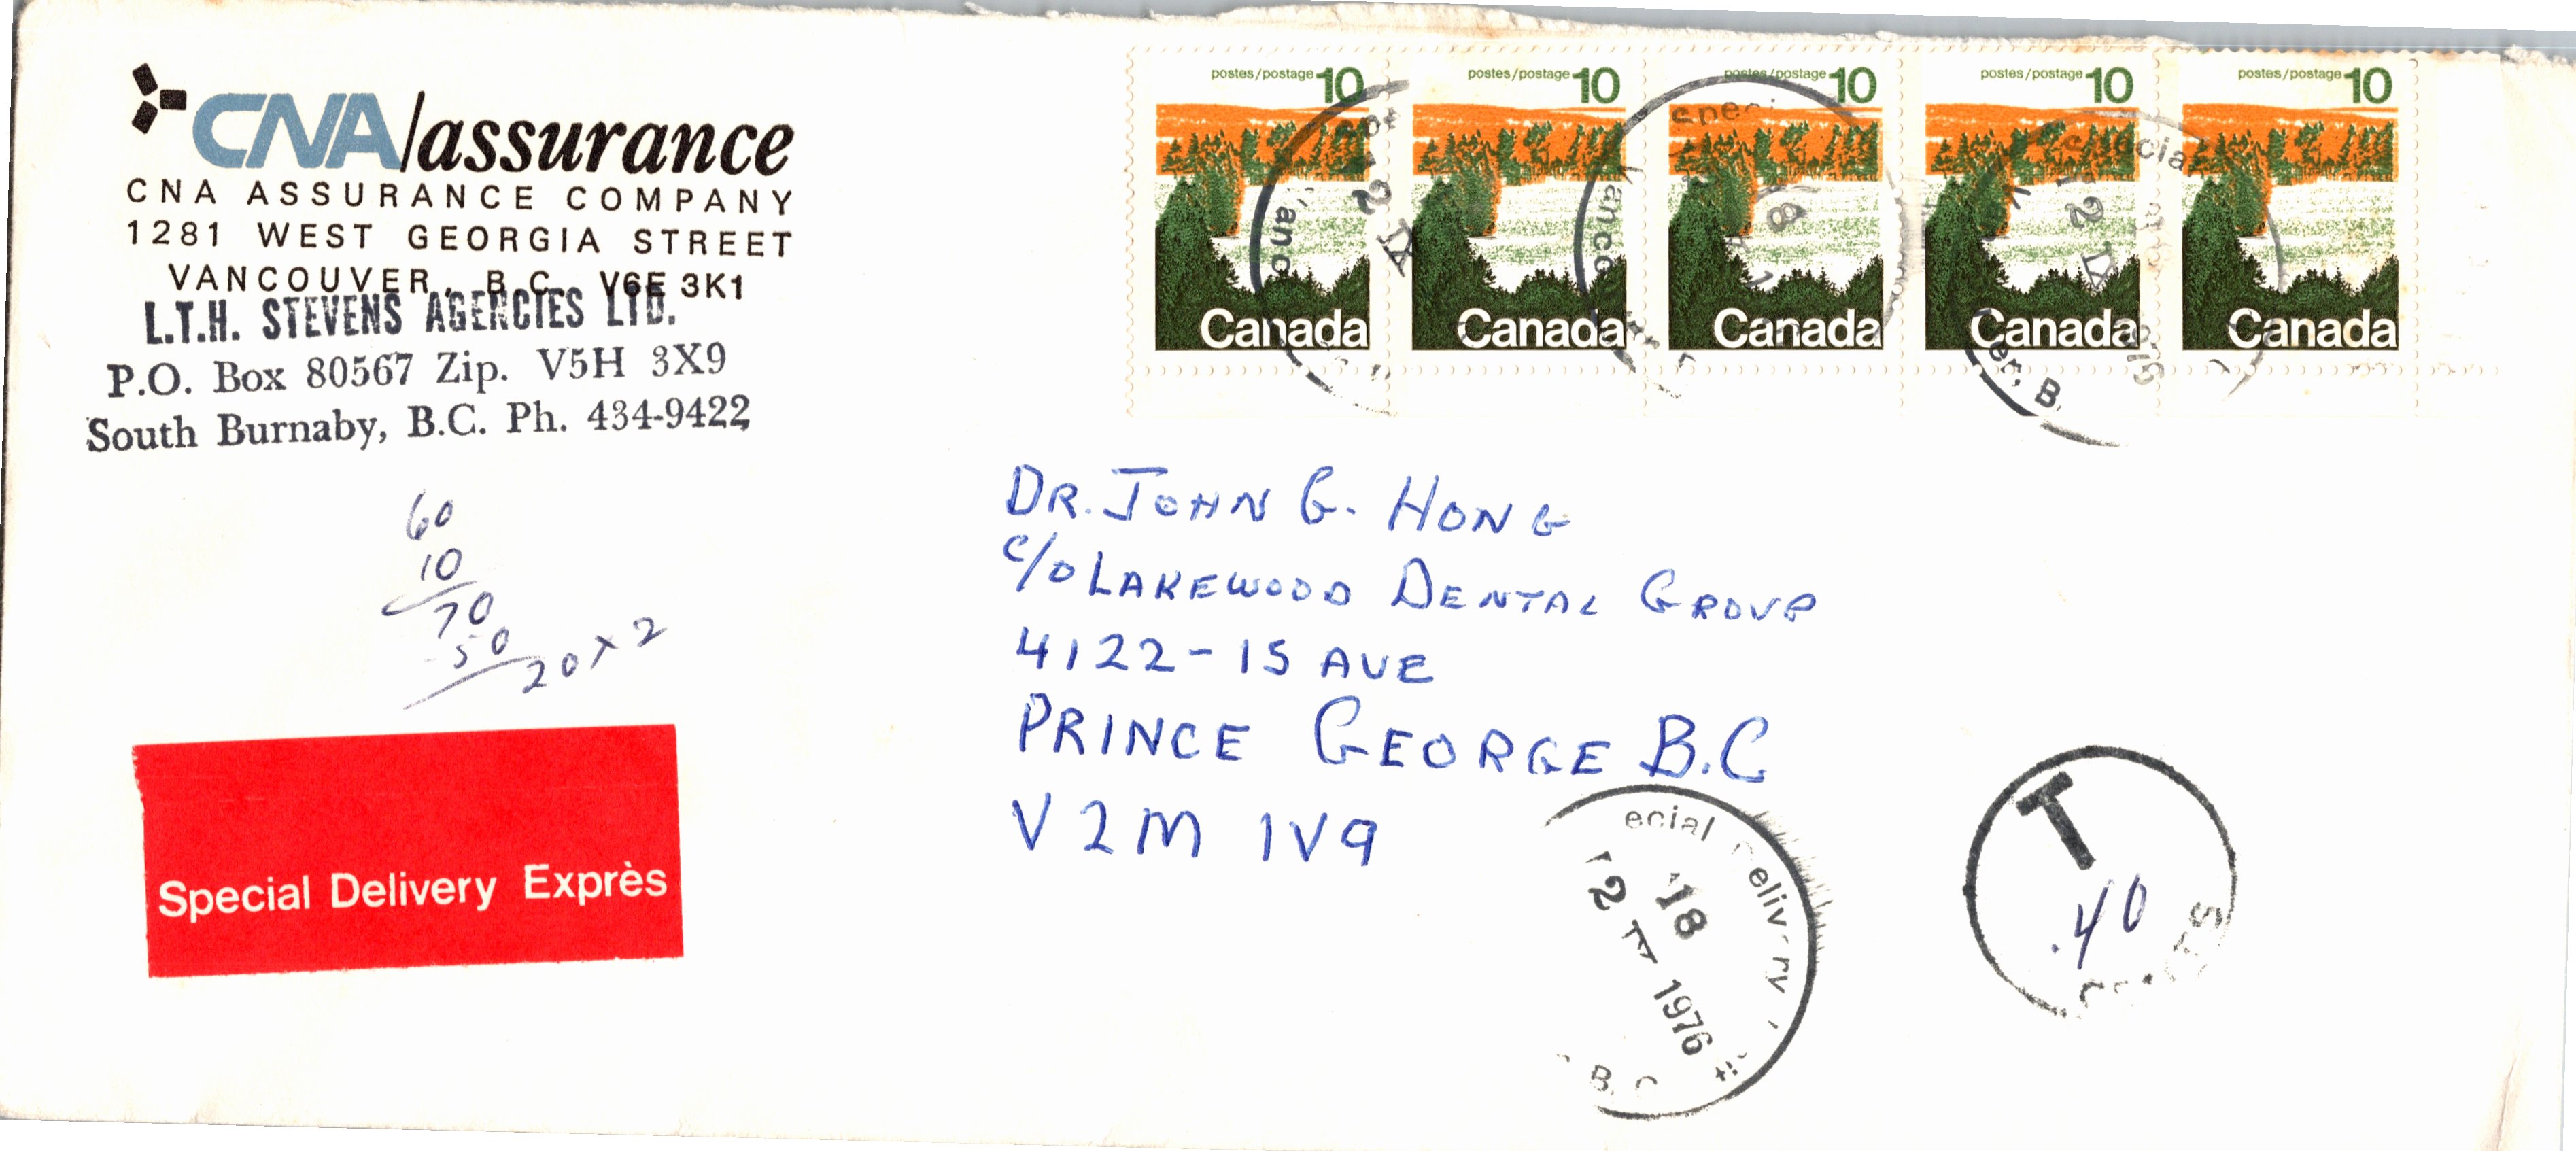 CNA/assurance
CNA ASSURANCE COMPANY
1281 WEST GEORGIA STREET
VANCOUVER, B.C. V6E 3K1
L.T.H. STEVENS AGENCIES LTD.
P.O. Box 80567 Zip. V5H 3X9
South Burnaby, B.C. Ph. 434-9422
postes/postage 10
Canada
postes/postage 10
Canada
postes/postage 10
Canada
postes/postage 10
Canada
postes/postage 10
Canada
60
10
70
-50
20 x 2
DR. JOHN G. HONG
c/o LAKEWOOD DENTAL GROUP
4122-15 AVE
PRINCE GEORGE B.C
V2M 1V9
Special Delivery Exprès
ecial elivery
18
1976
B.C
T
.40